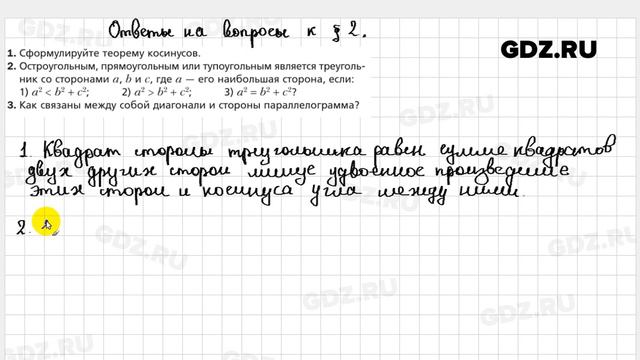 Ответы на вопросы к § 2.
GDZ.RU
1. Сформулируйте теорему косинусов.
2. Остроугольным, прямоугольным или тупоугольным является треуголь-
ник со сторонами a, b и c, где a — его наибольшая сторона, если:
1) a² < b² + c²; 2) a² > b² + c²; 3) a² = b² + c²?
3. Как связаны между собой диагонали и стороны параллелограмма?
1. Квадрат стороны треугольника равен сумме квадратов
двух других сторон минус удвоенное произведение
этих сторон и косинуса угла между ними.
2. 1)
GDZ.RU
GDZ.RU
GDZ.RU
GDZ.RU